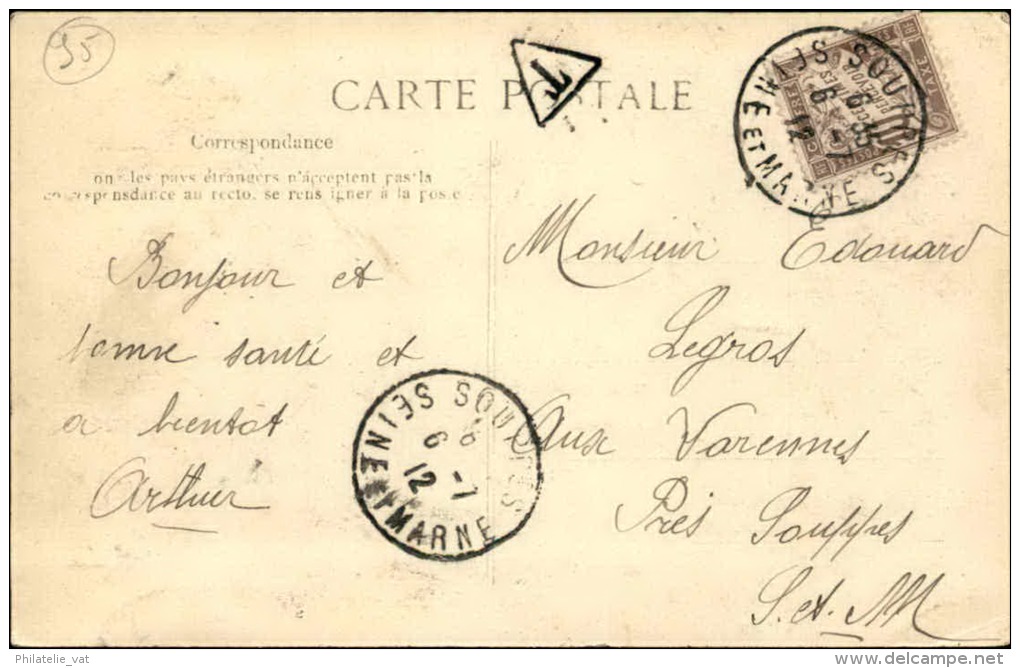 35
T
CARTE POSTALE
Correspondance
les pays étrangers n'acceptent pas la
au recto. se rens igner à la poste
TAXE
SOUPPES
SEINE ET MARNE
6 12
Bonjour et
bonne santé et
a bientot
Arthur
SEINE ET MARNE
6 12
Monsieur Edouard
Legros
Aux Varennes
Près Souppes
S. et. M
Philatelie_vat
www.delcampe.net